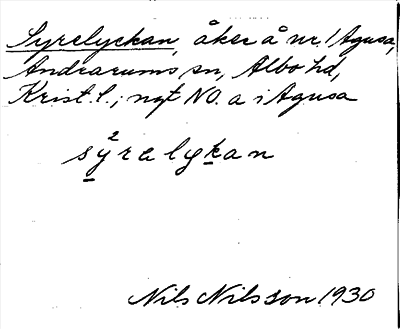 Syrelyckan, åker å nr. 1 Agusa,
Andrarums sn, Albo hd,
Krist. l.; ngt NO. a i Agusa
sy̌²relykan
Nils Nilsson 1930